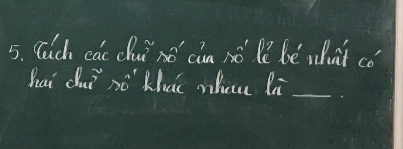 5. Tích các chữ số của số lẻ bé nhất có
hai chữ số khác nhau là ___.